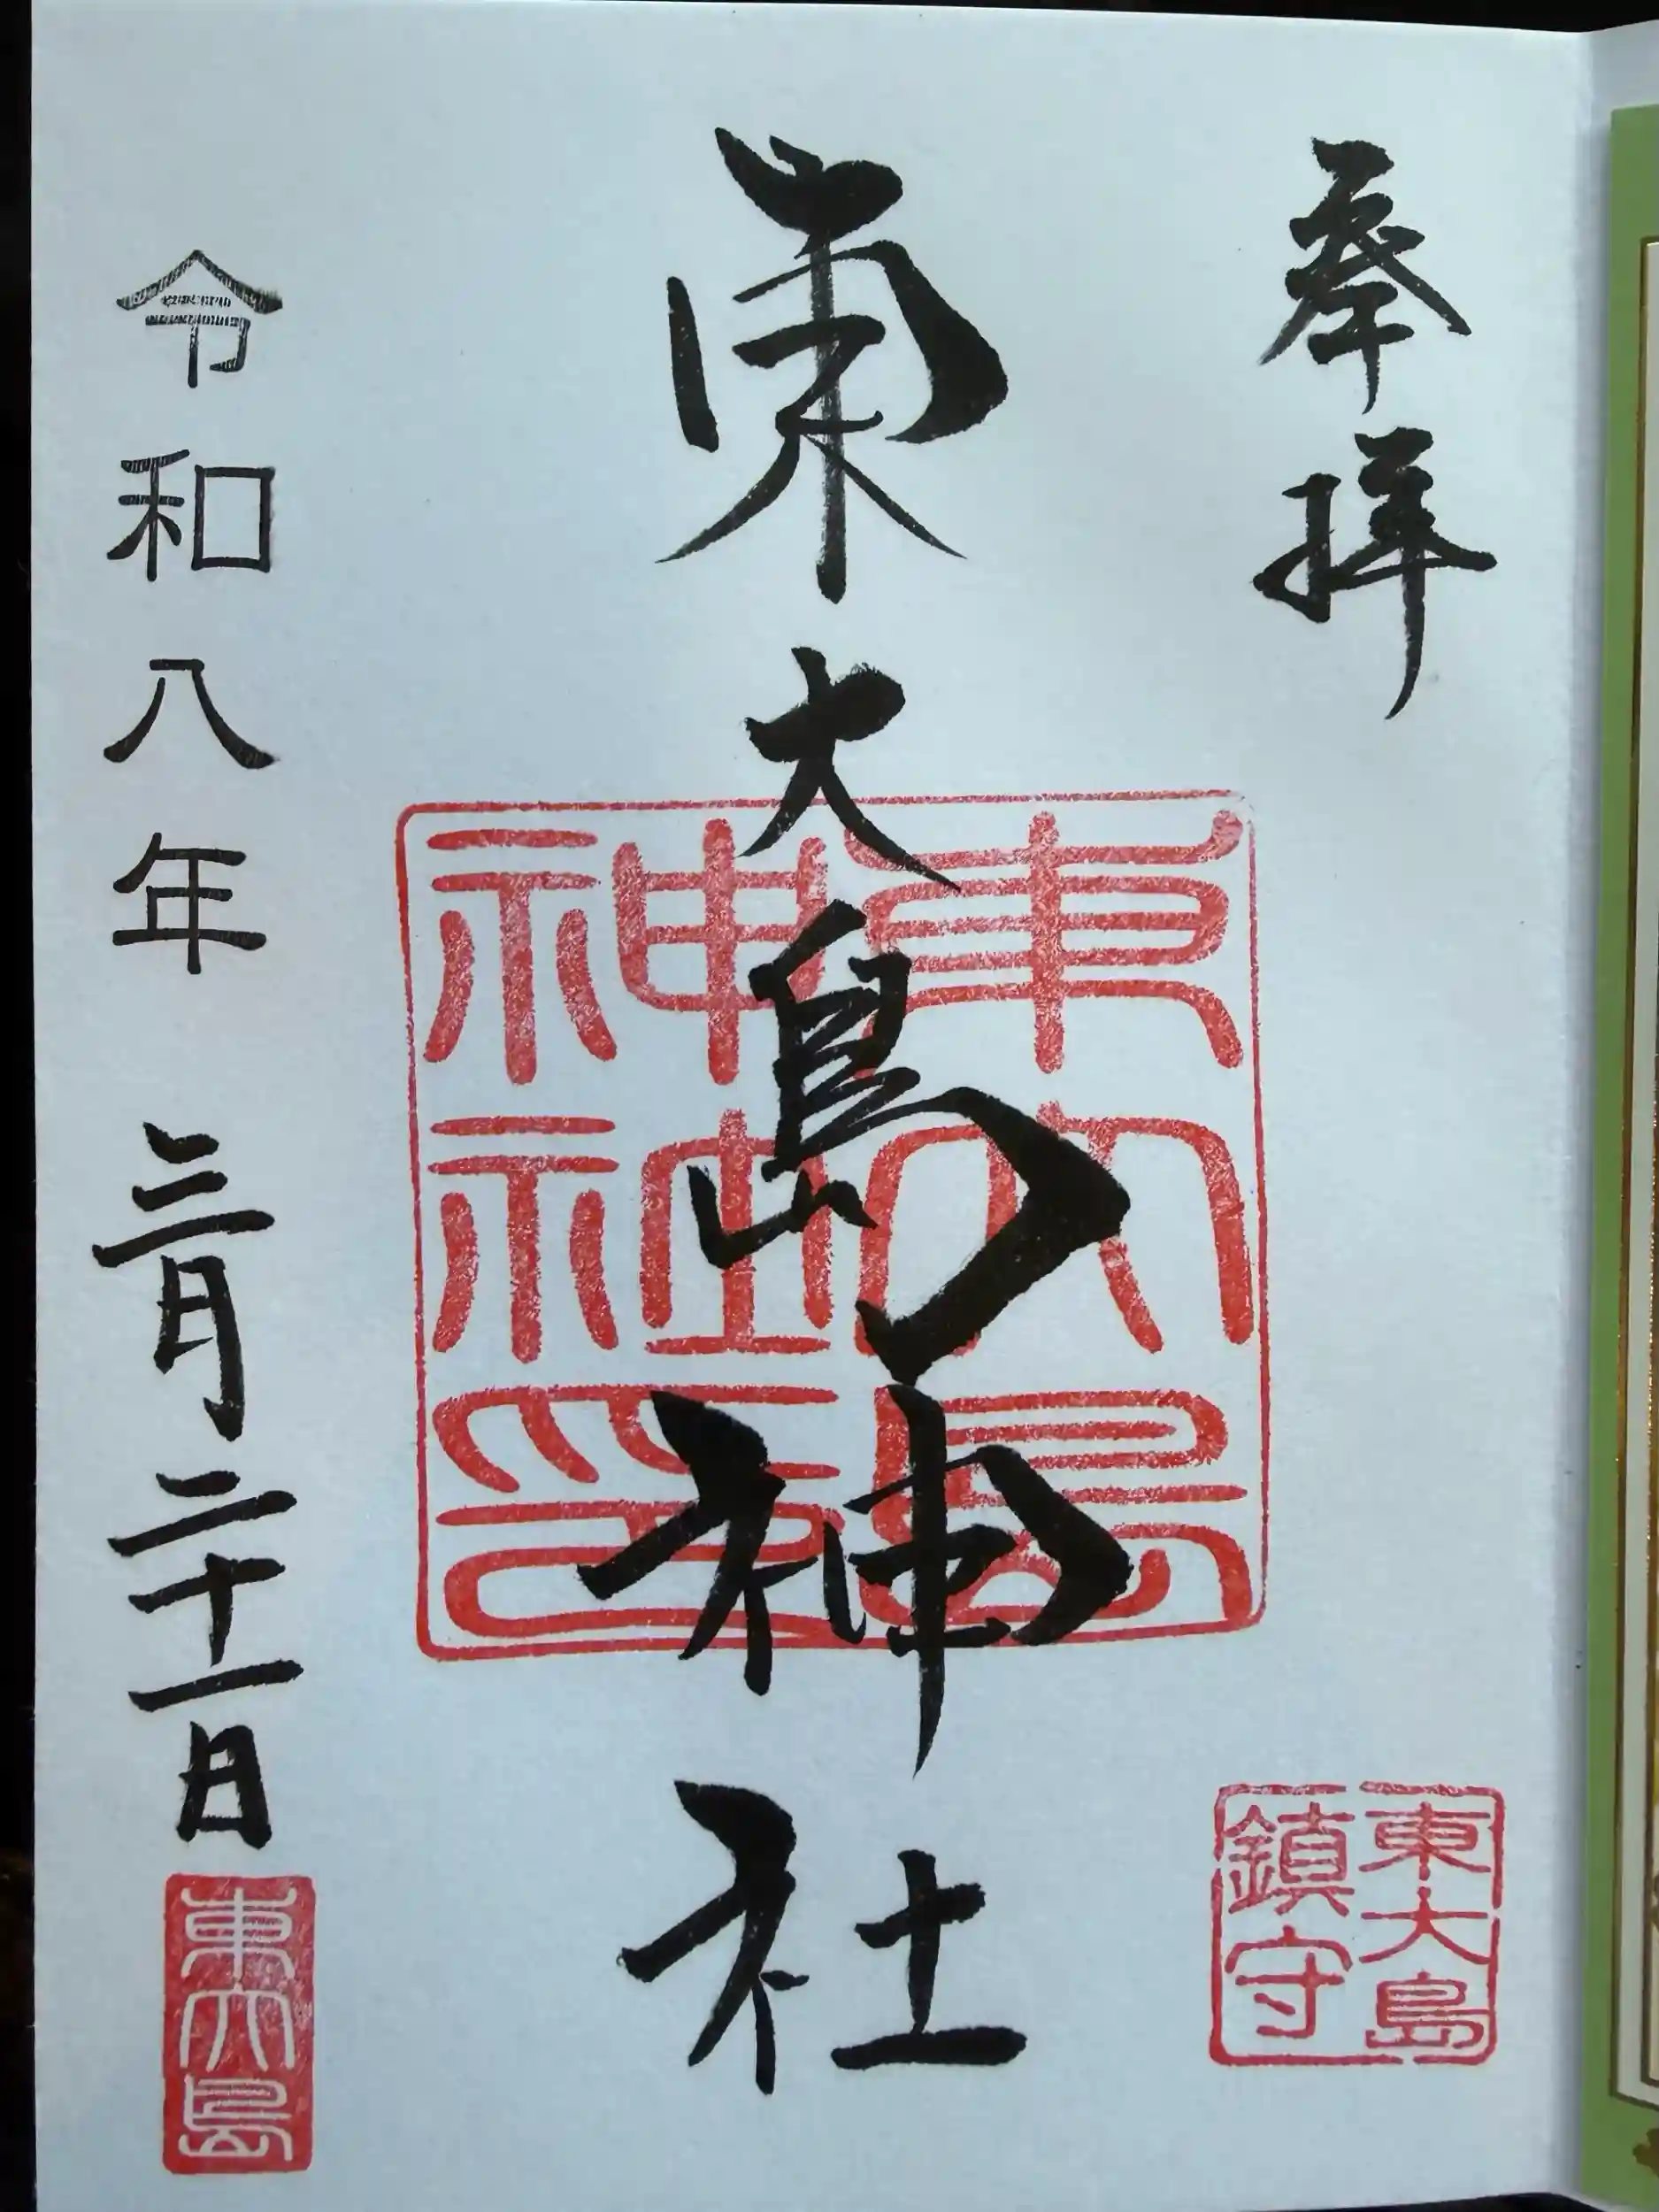 奉拝
東大島
鎮守
東大島神社
東大島
神社印
令和八年 三月二十一日
東大島